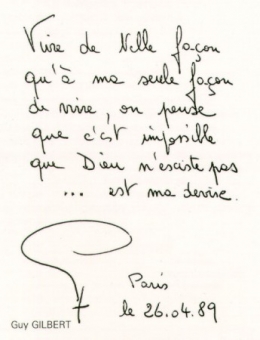 Vivre de telle façon
qu'à ma seule façon
de vivre, on pense
que c'est impossible
que Dieu n'existe pas
... est ma devise.
Paris
le 26.04.89
Guy GILBERT